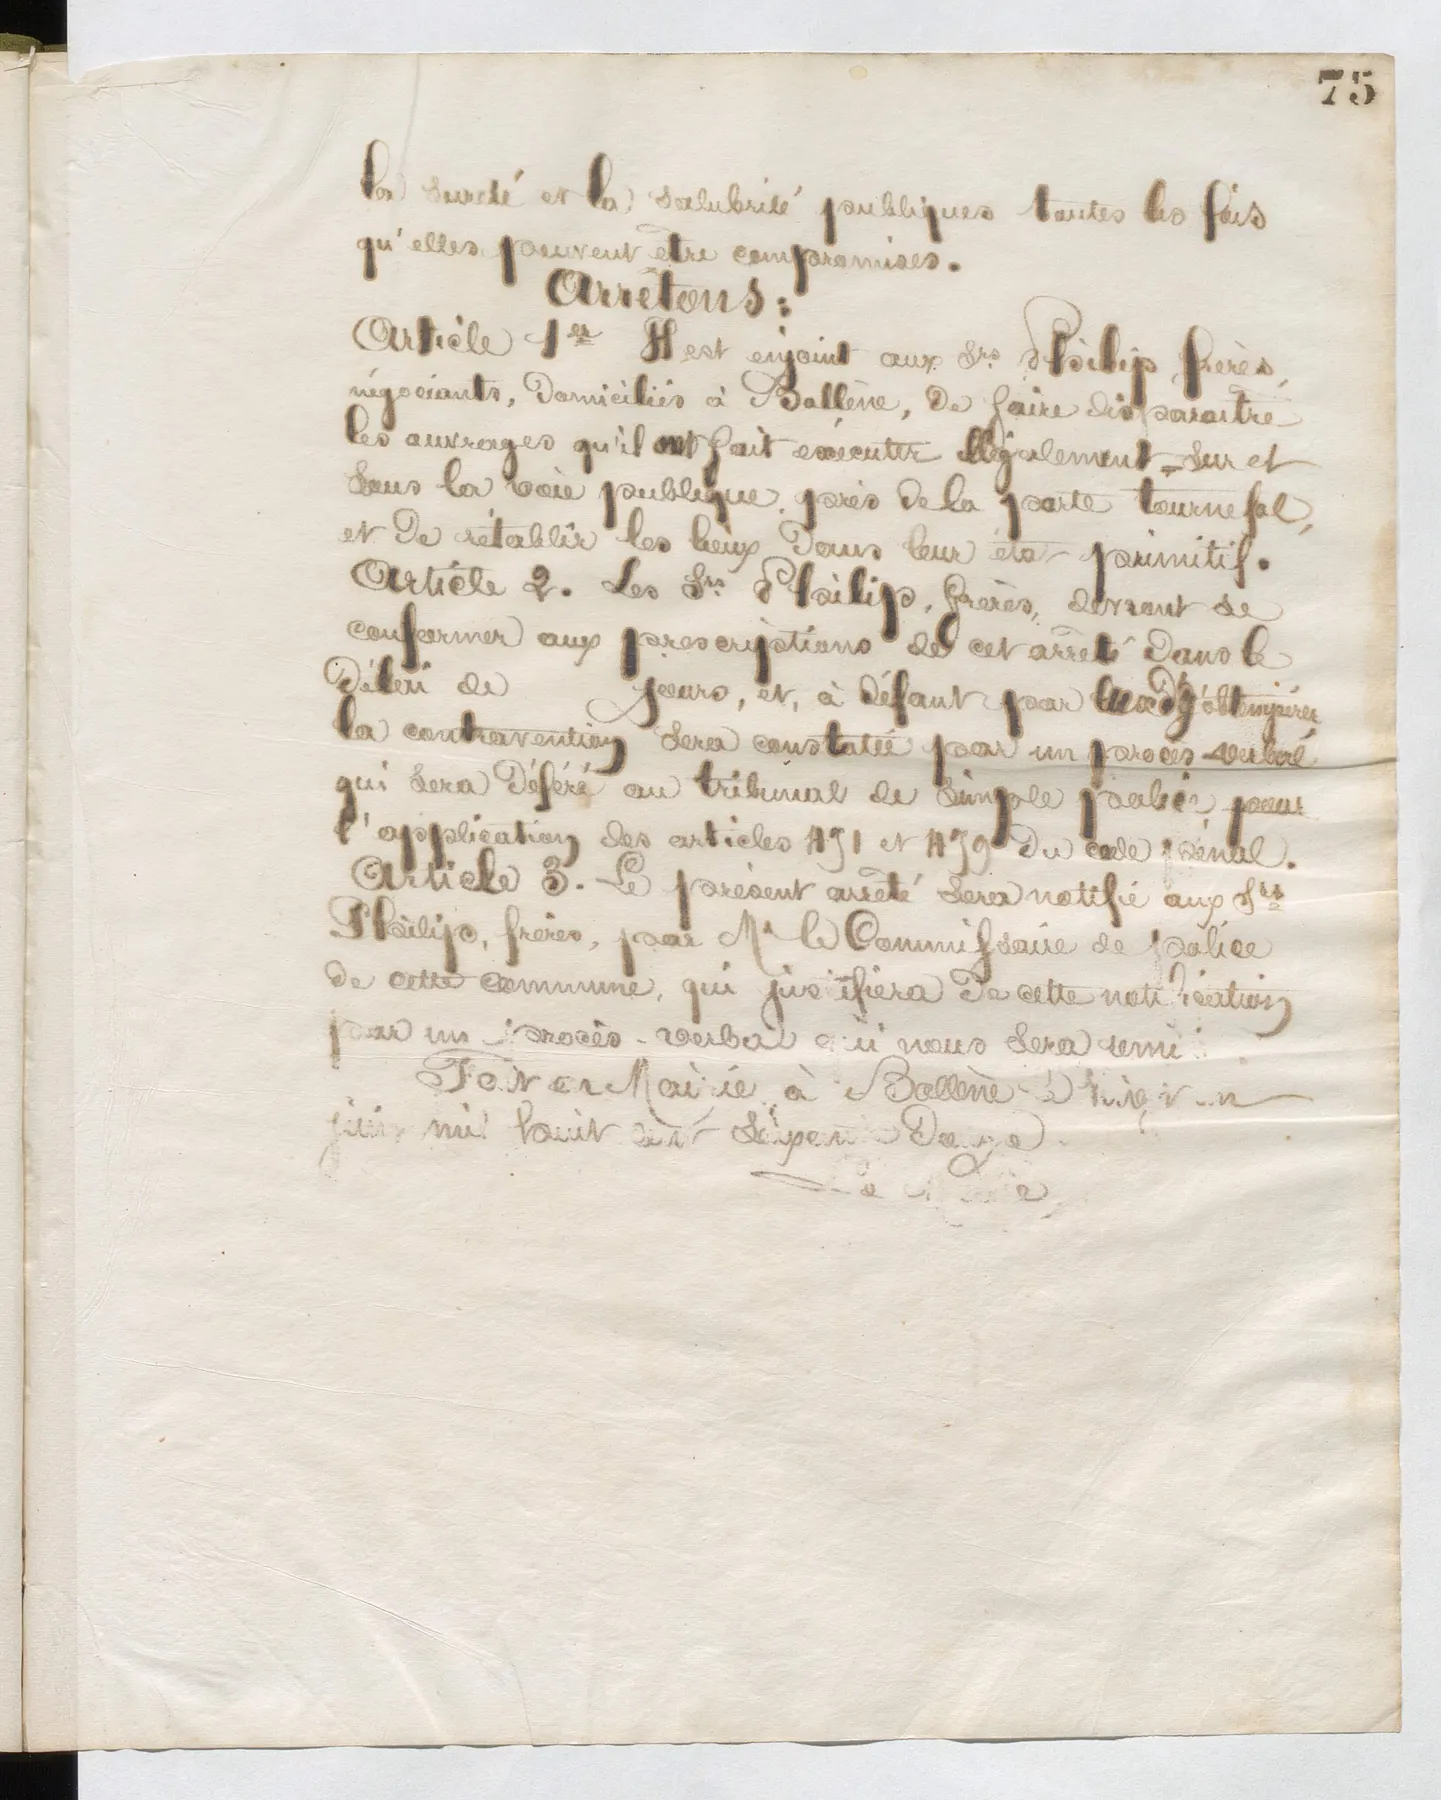 75
la sureté et la salubrité publiques toutes les fois
qu'elles peuvent être compromises.
Arrêtons:
Article 1er Il est enjoint aux Srs Philip, frères,
négociants, domiciliés à Bollène, de faire disparaitre
les ouvrages qu'il ont fait exécuter illégalement sur et
sous la voie publique, près de la porte tournefol,
et de rétablir les lieux dans leur état primitif.
Article 2. Les Srs Philip, frères, devront se
conformer aux prescriptions de cet arrêté dans le
délai de jours, et, à défaut par eux d'y obtempérer
la contravention sera constatée par un procès-verbal
qui sera déféré au tribunal de simple police pour
l'application des articles 471 et 479 du code pénal.
Article 3. Le présent arrêté sera notifié aux Srs
Philip, frères, par Mr le Commissaire de police
de cette commune, qui justifiera de cette notification
par un procès-verbal qui nous sera remis
Fait en Mairie à Bollène le
juin mil huit cent